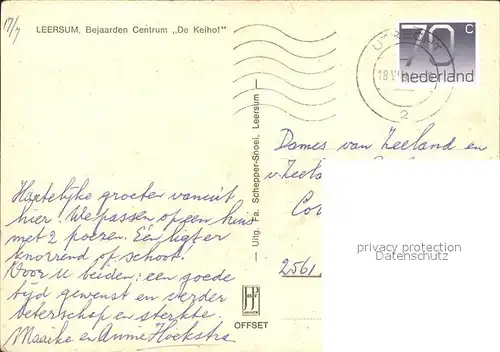 17/7
LEERSUM, Bejaarden Centrum „De Keihof"
UTRECHT
70 c
nederland
18 V
2
Uitg. Fa. Schepper-Snoei, Leersum
Dames van Zeeland en
v. Zeela
Co
2561
privacy protection
Datenschutz
Hartelijke groeten vanuit
hier! We passen op een huis
met 2 poezen. Eén ligt er
knorrend op schoot!
Voor u beiden: een goede
tijd gewenst en verder
beterschap en sterkte.
Maaike en Annie Hoekstra
OFFSET